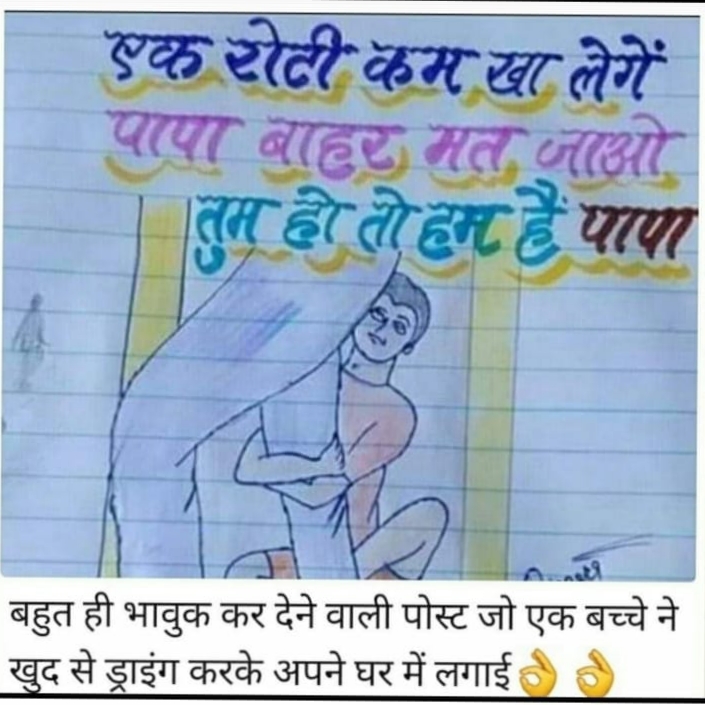 एक रोटी कम खा लेगें
पापा बाहर मत जाओ
तुम हो तो हम हैं पापा
बहुत ही भावुक कर देने वाली पोस्ट जो एक बच्चे ने
खुद से ड्राइंग करके अपने घर में लगाई👌 👌